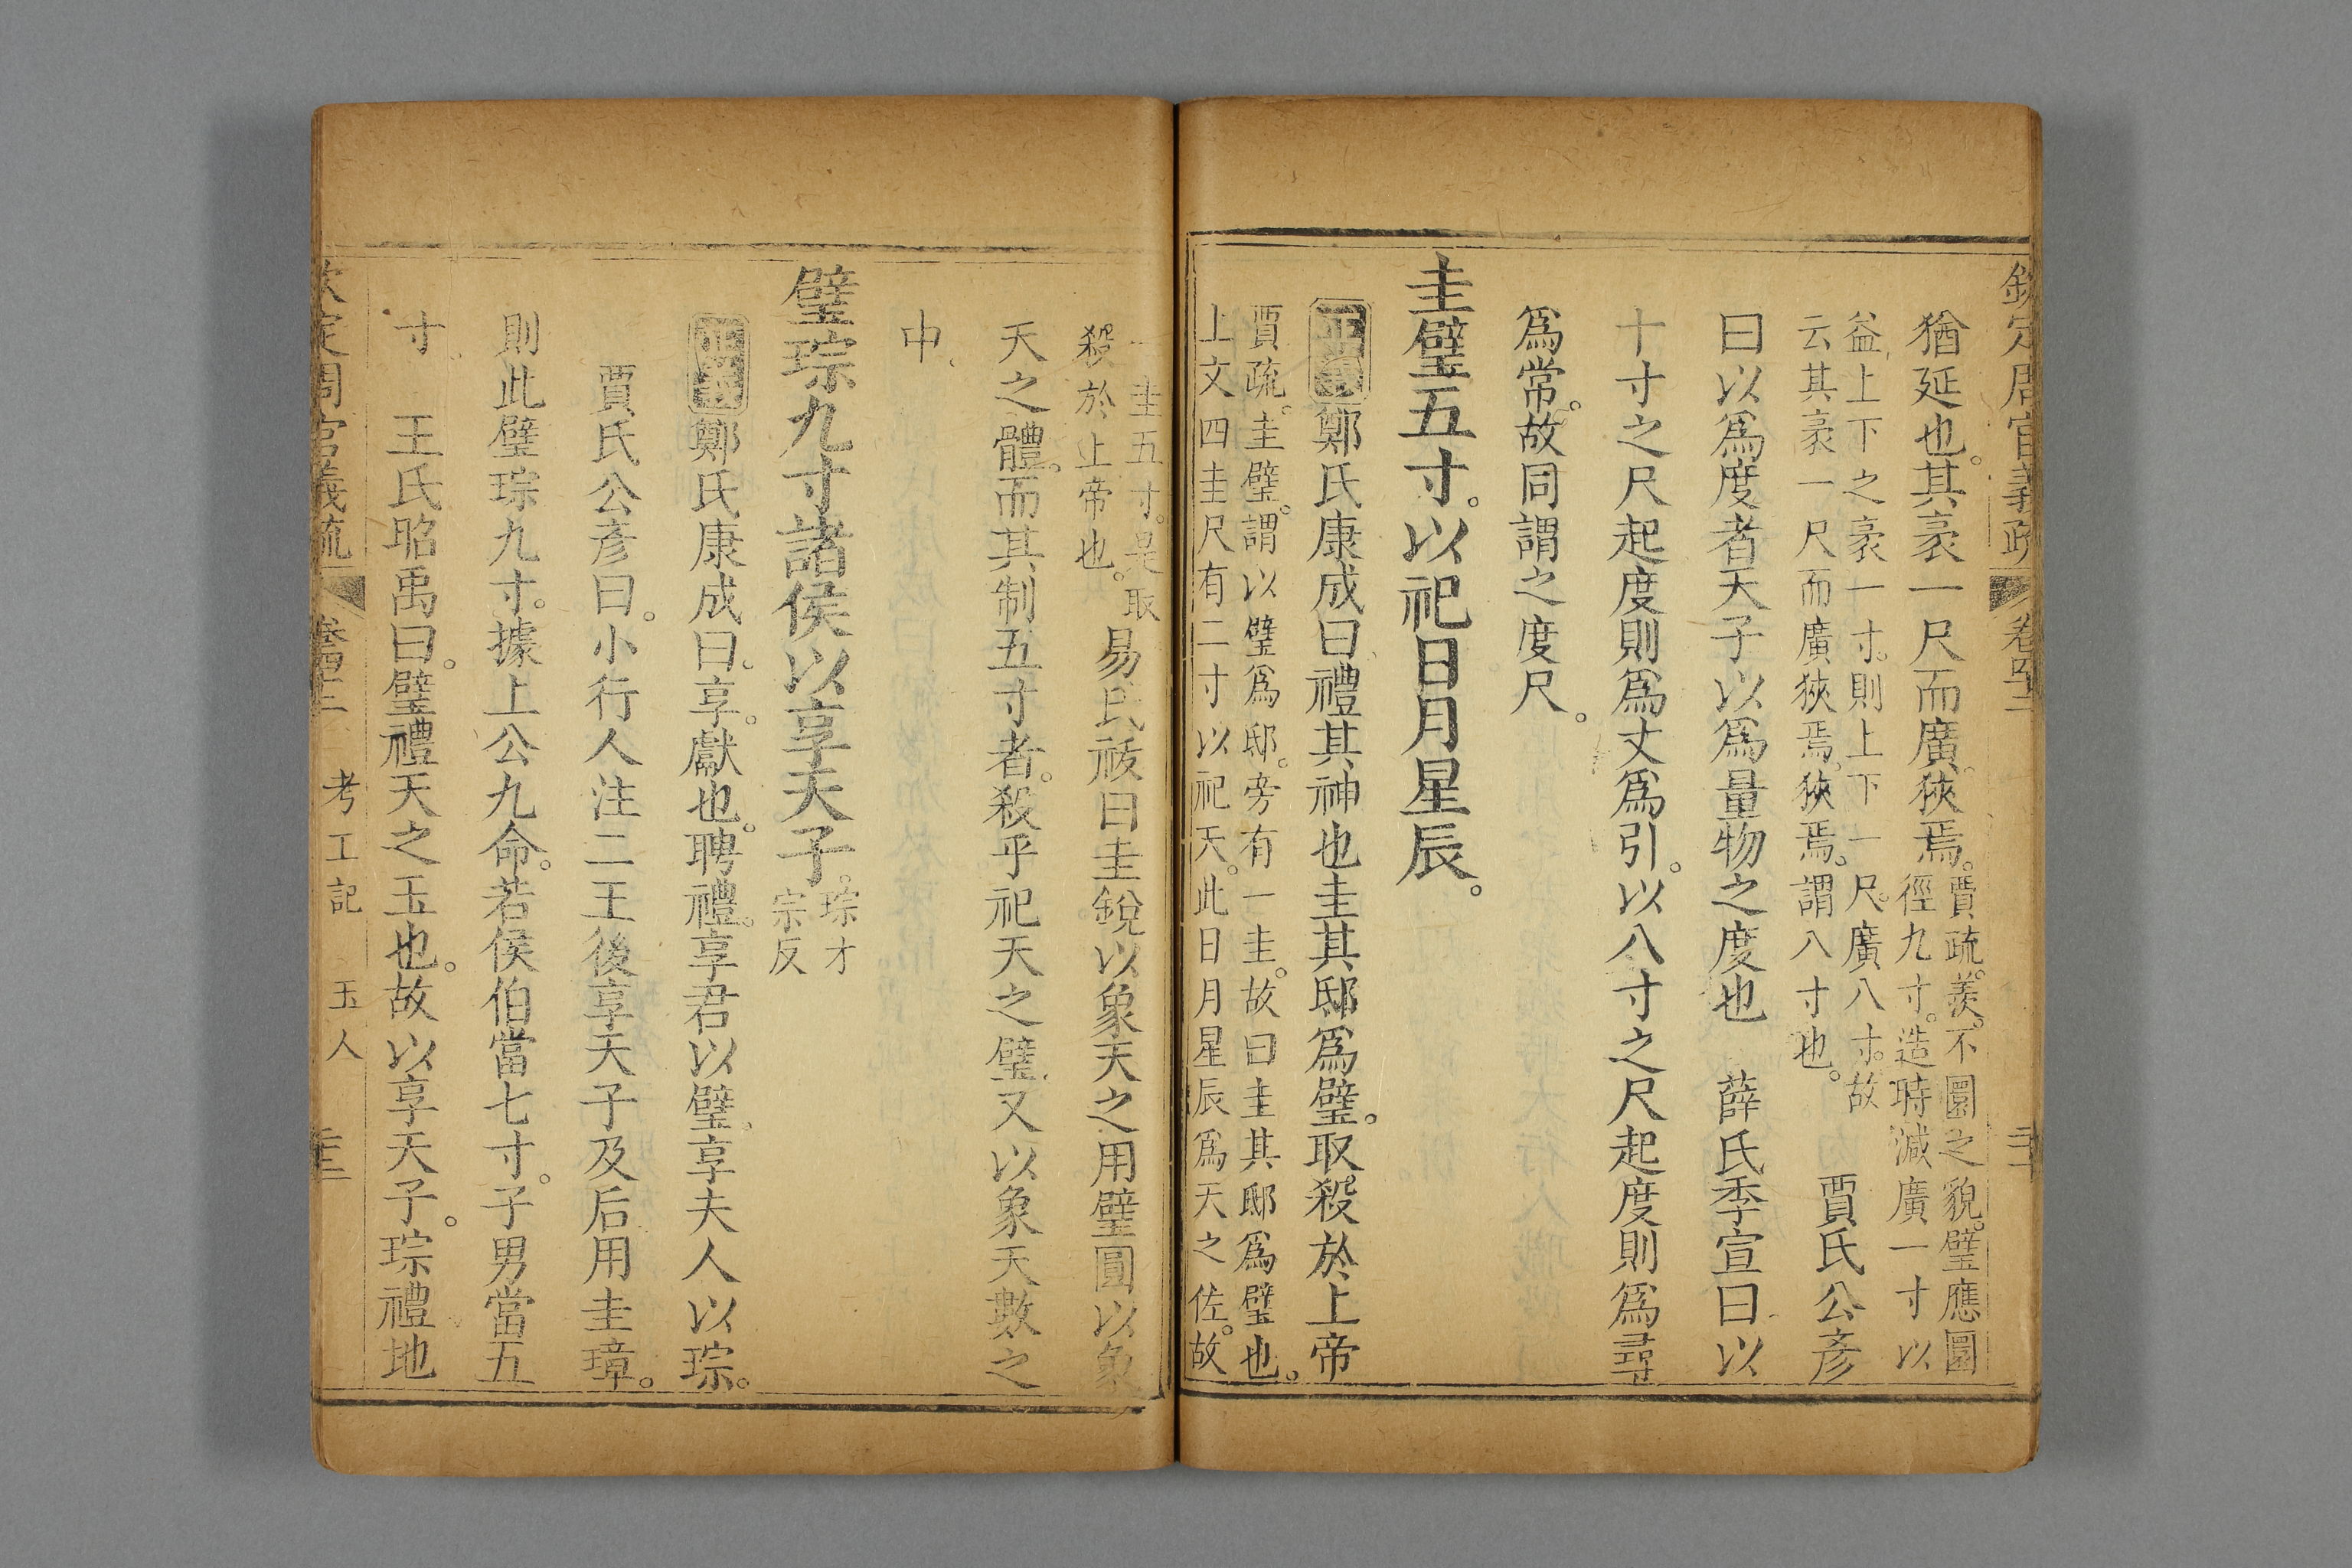 欽定周官義疏 卷四十三
猶延也。其袤一尺而廣狹焉。賈疏。羨。不圜之貌。璧應圜
徑九寸。造時減廣一寸以
益上下之袤一寸。則上下一尺。廣八寸。故
云其袤一尺而廣狹焉。狹焉。謂八寸也。 賈氏公彥
曰以爲度者天子以爲量物之度也 薛氏季宣曰以
十寸之尺起度則爲丈爲引。以八寸之尺起度則爲尋
爲常。故同謂之度尺。
圭璧五寸。以祀日月星辰。
正義鄭氏康成曰禮其神也圭其邸爲璧。取殺於上帝
賈疏。圭璧。謂以璧爲邸。旁有一圭。故曰圭其邸爲璧也。
上文四圭尺有二寸以祀天。此日月星辰爲天之佐。故
一圭五寸。是取
殺於上帝也。 易氏祓曰圭銳以象天之用璧圓以象
天之體。而其制五寸者。殺乎祀天之璧又以象天數之
中
璧琮九寸諸侯以享天子。琮才
宗反
正義鄭氏康成曰。享。獻也。聘禮。享君以璧。享夫人以琮。
賈氏公彥曰。小行人注二王後享天子及后用圭璋。
則此璧琮九寸。據上公九命。若侯伯當七寸。子男當五
寸 王氏昭禹曰。璧禮天之玉也。故以享天子。琮禮地
欽定周官義疏 卷四十三 考工記 玉人